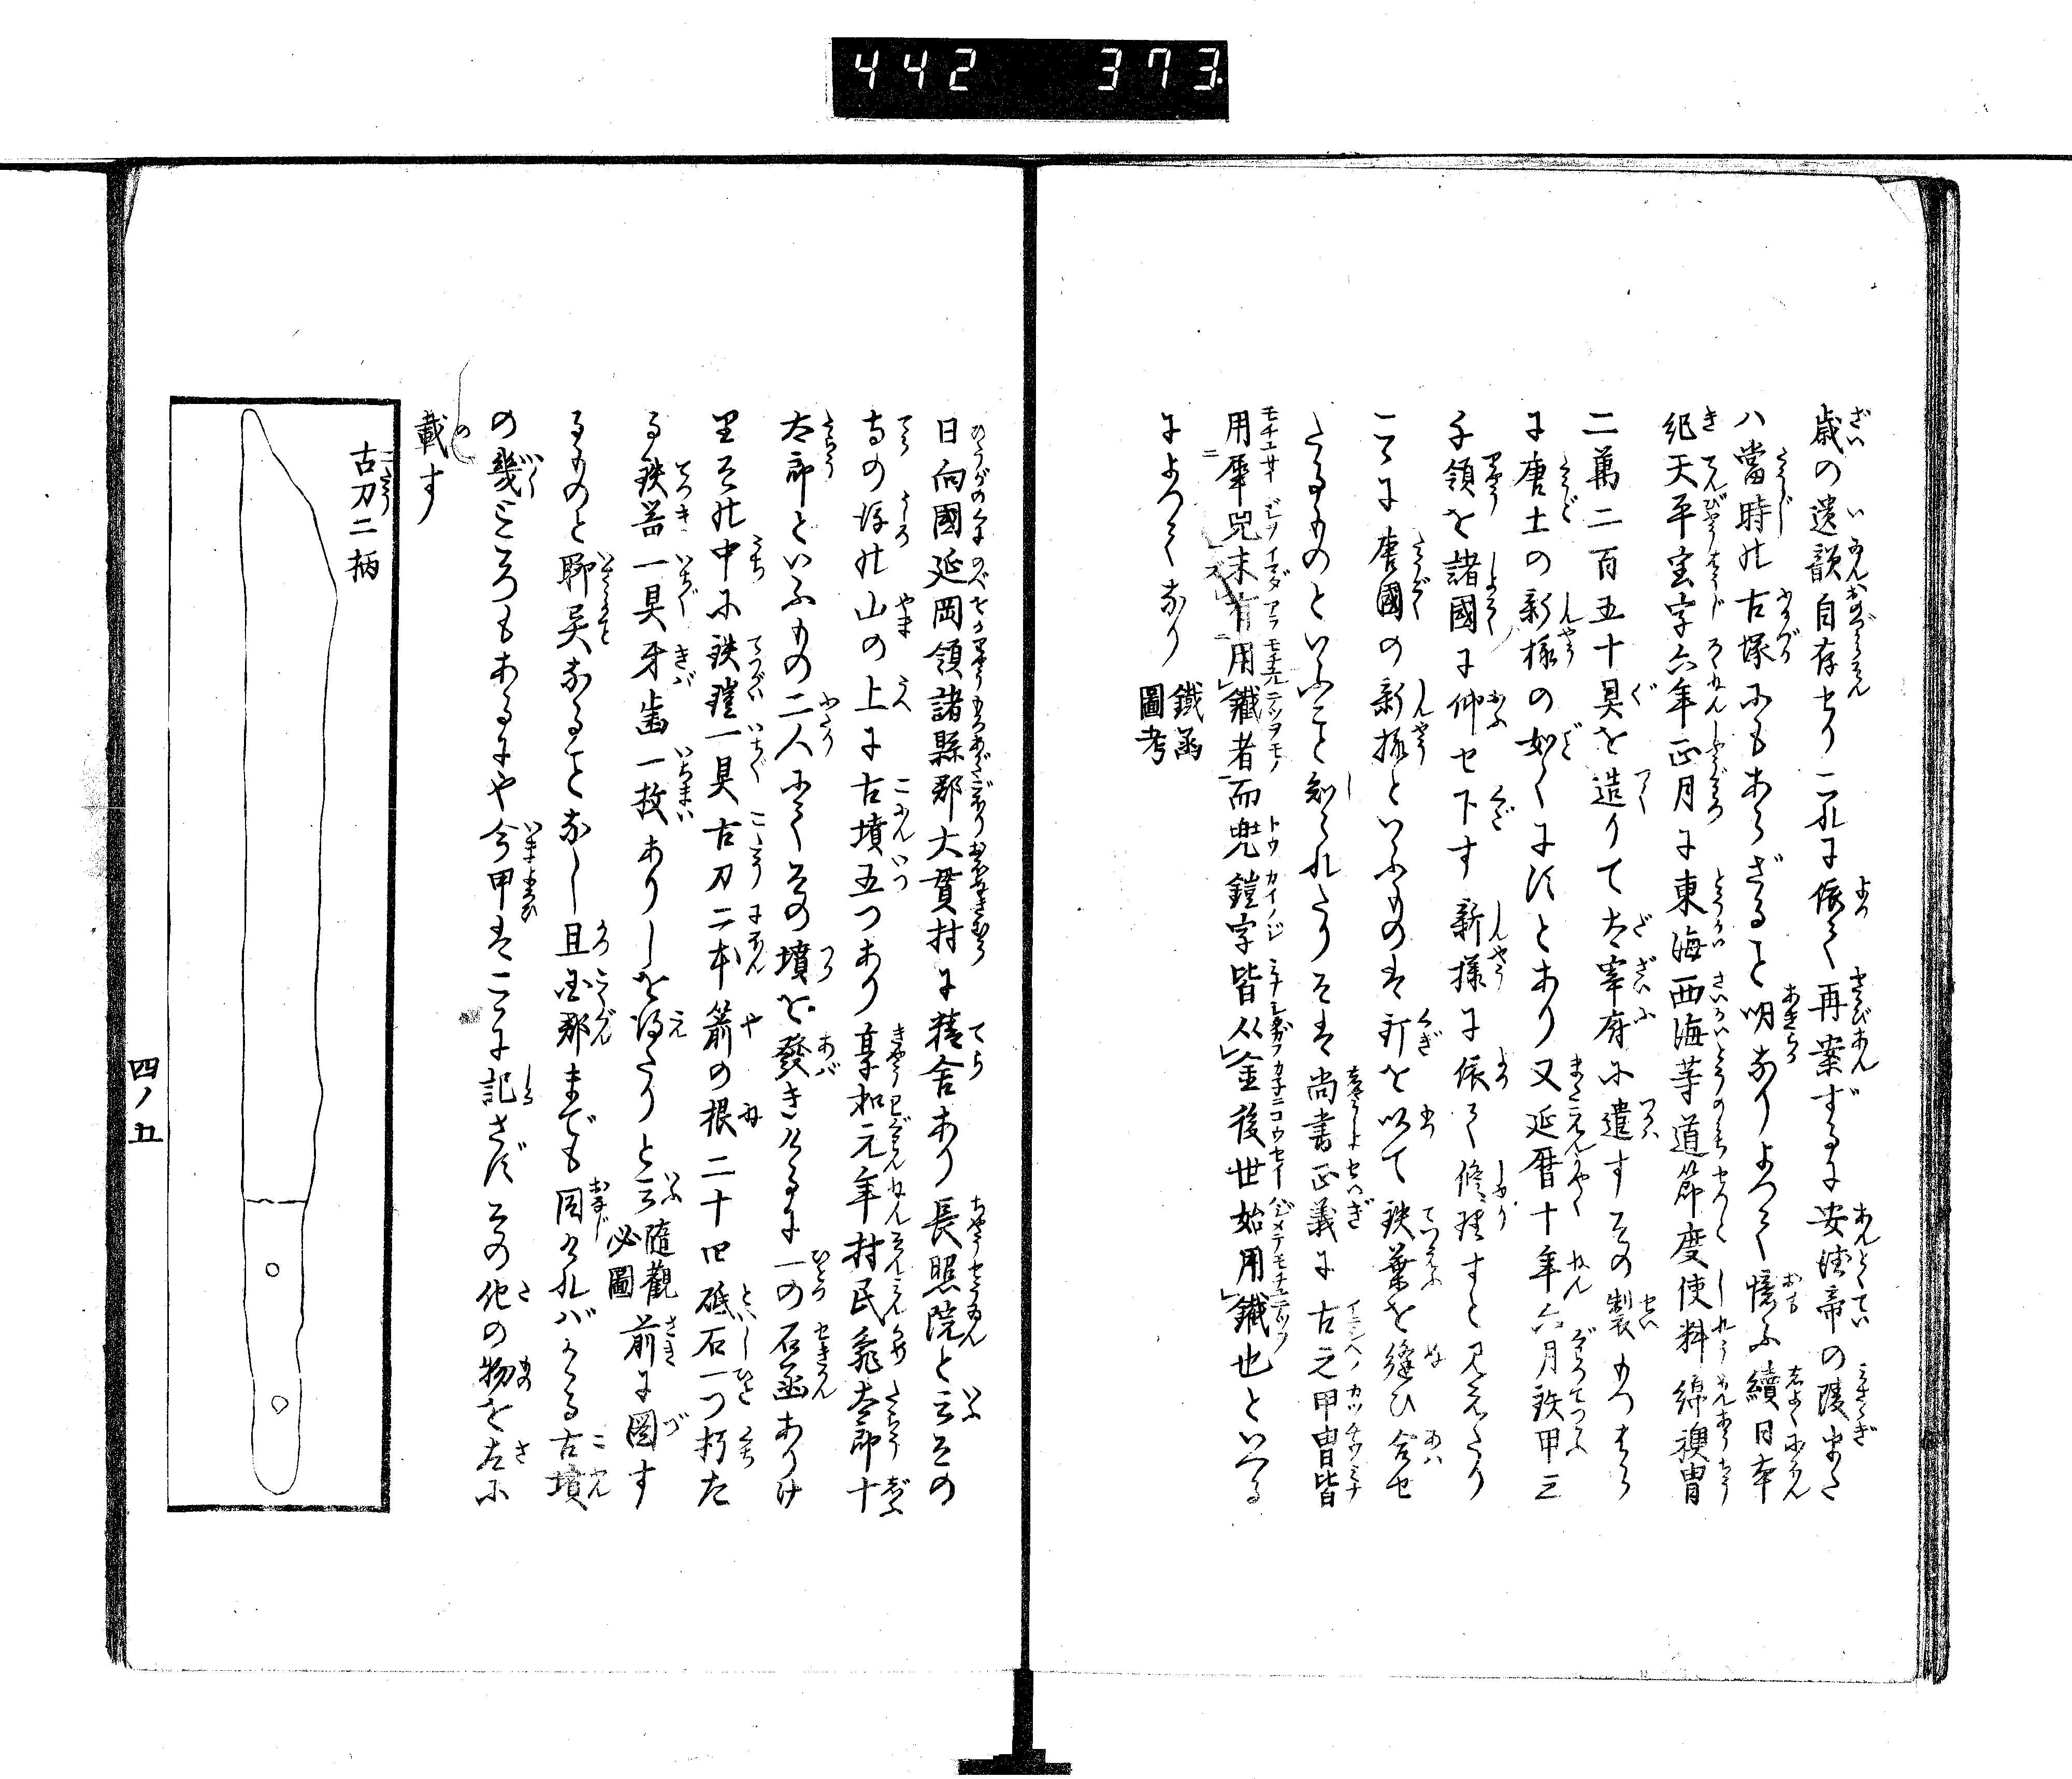 442 373
歳の遺韻自存せり二孔に依て再案ずるに安徳帝の陵また
ハ當時の古塚にもあらざると明なりよつて憶ふ續日本
紀天平宝字六年正月に東海西海等道節度使料綿襖冑
二萬二百五十具を造りて太宰府に遣すその製もつはら
に唐土の新様の如くにすとあり又延暦十年六月鉄甲三
千領を諸國に仰セ下す新様に依て修理すと見えたり
こゝに唐國の新様といふものは釘を以て鉄葉を縫ひ合セ
たるものといふこと知られたりそは尚書正義に古之甲冑皆
用犀兕未有用鐵者而兜鎧字皆从金後世始用鐵也といへる
によつてなり鐵函圖考
日向國延岡領諸縣郡大貫村に精舎あり長照院と云その
寺の後の山の上に古墳五つあり享和元年村民亀太郎十
太郎といふもの二人にてその墳を發きけるに一の石函ありけ
里その中に鉄鎧一具古刀二本箭の根二十四砥石一つ朽た
る鉄器一具牙歯一枚ありしを得たりと云隨觀必圖前に図す
るものと聊異なることなし且国郡までも同けれバかゝる古墳
の幾ところもあるにや今甲はこゝに記さずその他の物を左に
載す
古刀二柄
四ノ五